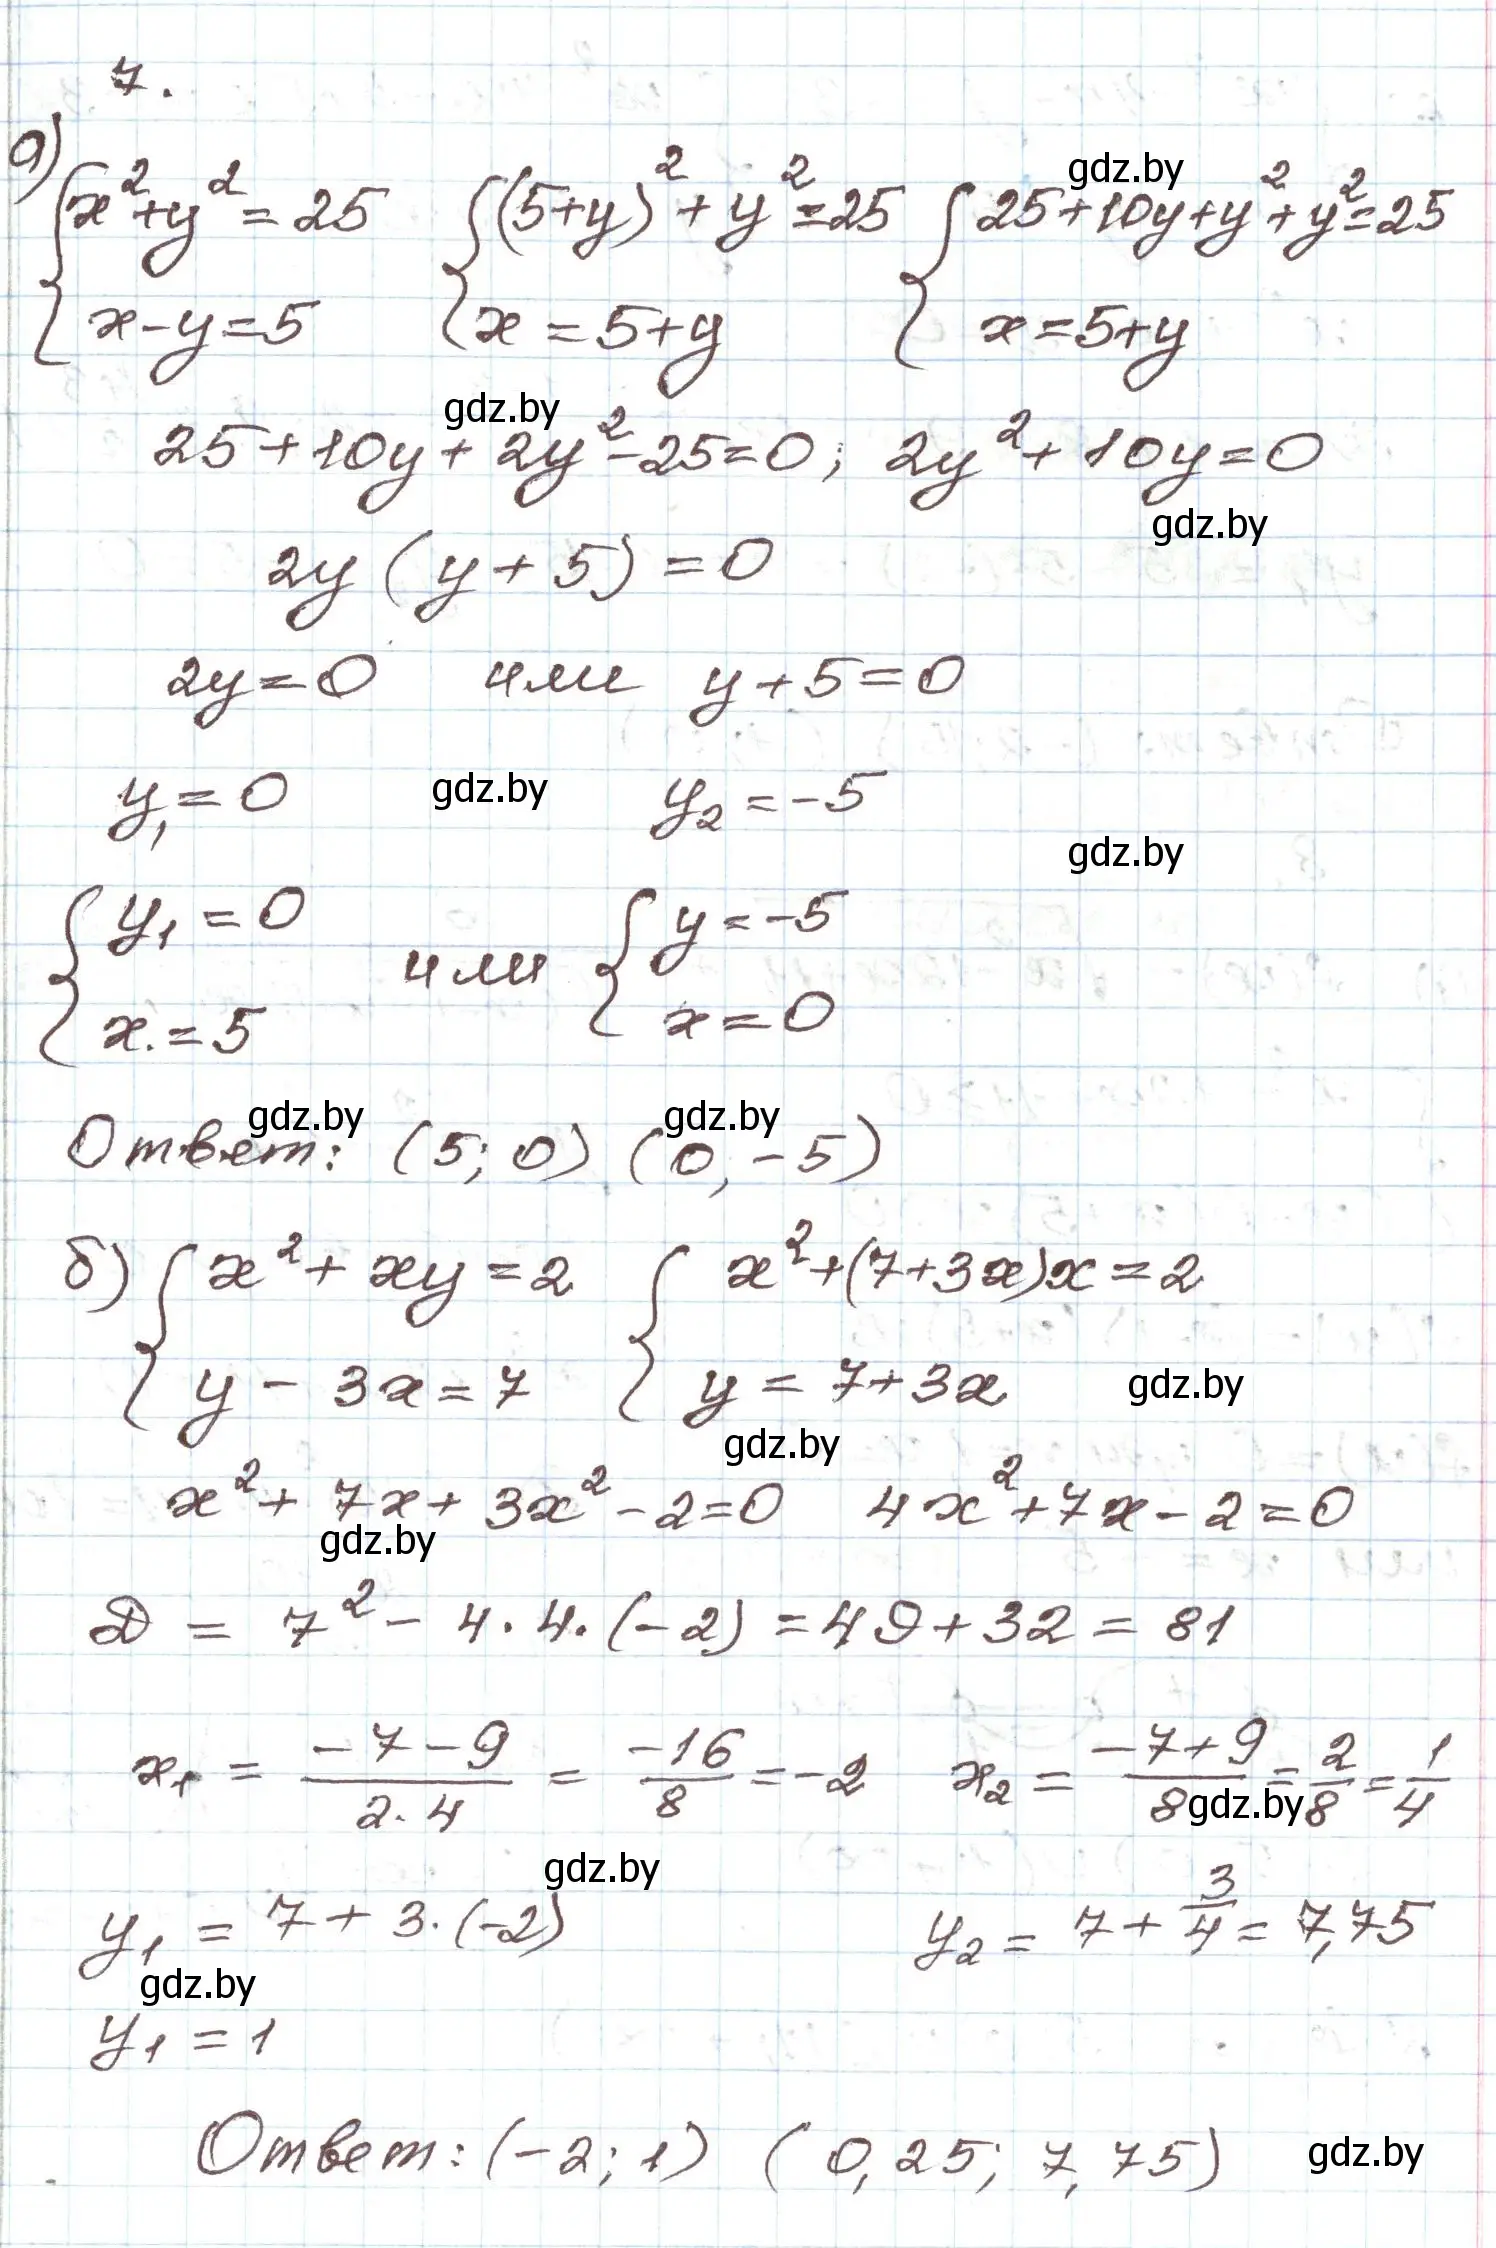 7.
а) { x² + y² = 25 { (5+y)² + y² = 25 { 25 + 10y + y² + y² = 25
gdz.by
x - y = 5 x = 5 + y x = 5 + y
gdz.by
25 + 10y + 2y² - 25 = 0; 2y² + 10y = 0
gdz.by
2y (y + 5) = 0
2y = 0 или y + 5 = 0
y₁ = 0 gdz.by y₂ = -5
gdz.by
{ y₁ = 0 или { y = -5
x. = 5 x = 0
gdz.by gdz.by
Ответ: (5; 0) (0, -5)
б) { x² + xy = 2 { x² + (7+3x)x = 2
y - 3x = 7 y = 7 + 3x gdz.by
gdz.by
x² + 7x + 3x² - 2 = 0 4x² + 7x - 2 = 0
gdz.by
D = 7² - 4·4·(-2) = 49 + 32 = 81
x₁ = (-7-9)/(2·4) = -16/8 = -2 x₂ = (-7+9)/8 = 2/8 = 1/4
gdz.by
gdz.by
y₁ = 7 + 3·(-2) y₂ = 7 + 3/4 = 7,75
gdz.by
y₁ = 1
Ответ: (-2; 1) (0,25; 7,75) gdz.by